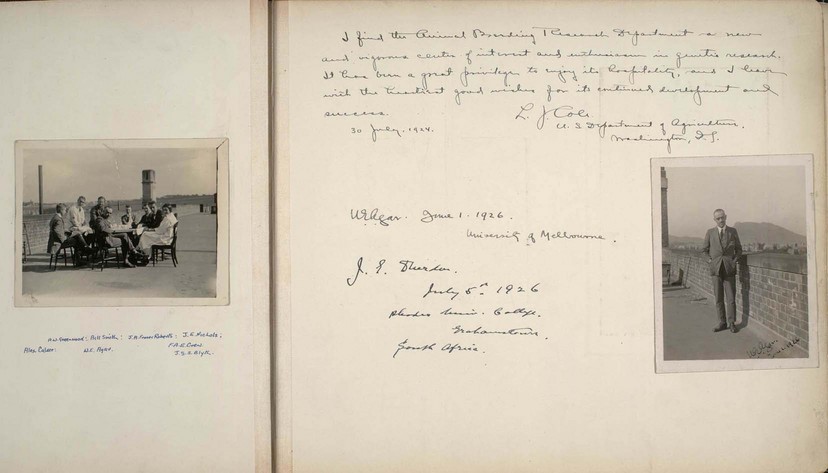 A.W. Greenwood; Bill Smith; J.A. Fraser Roberts; J.E. Nichols;
Alex W.E. Agar. F.A.E. Crew.
J.S.S. Blyth.
I find the Animal Breeding Research Department a new
and vigorous center of interest and enthusiasm in genetic research.
It has been a great privilege to enjoy its hospitality, and I leave
with the heartiest good wishes for its continued development and
success. L. J. Cole
30 July, 1924. U. S. Department of Agriculture.
Washington, D.C.
W.E. Agar. June 1. 1926.
University of Melbourne.
J. E.
July 5th 1926
Rhodes Univ. College.
Grahamstown.
South Africa.